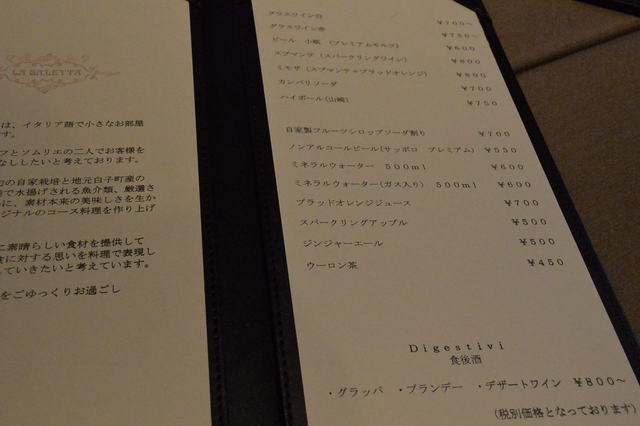 LA SALETTA
は、イタリア語で小さなお部屋
す。
フとソムリエの二人でお客様を
なししたいと考えております。
の自家栽培と地元白子町産の
で水揚げされる魚介類、厳選さ
に、素材本来の美味しさを生か
ジナルのコース料理を作り上げ
に素晴らしい食材を提供して
食に対する思いを料理で表現し
していきたいと考えています。
をごゆっくりお過ごし
グラスワイン白 ￥700～
グラスワイン赤 ￥750～
ビール 小瓶 (プレミアムモルツ) ￥600
スプマンテ (スパークリングワイン) ￥800
ミモザ (スプマンテ+ブラッドオレンジ) ￥800
カンパリソーダ ￥700
ハイボール(山崎) ￥750
自家製フルーツシロップソーダ割り ￥700
ノンアルコールビール(サッポロ プレミアム) ￥550
ミネラルウォーター 500ml ￥600
ミネラルウォーター(ガス入り) 500ml ￥600
ブラッドオレンジジュース ￥700
スパークリングアップル ￥500
ジンジャーエール ￥500
ウーロン茶 ￥450
Digestivi
食後酒
・グラッパ ・ブランデー ・デザートワイン ￥800～
(税別価格となっております)